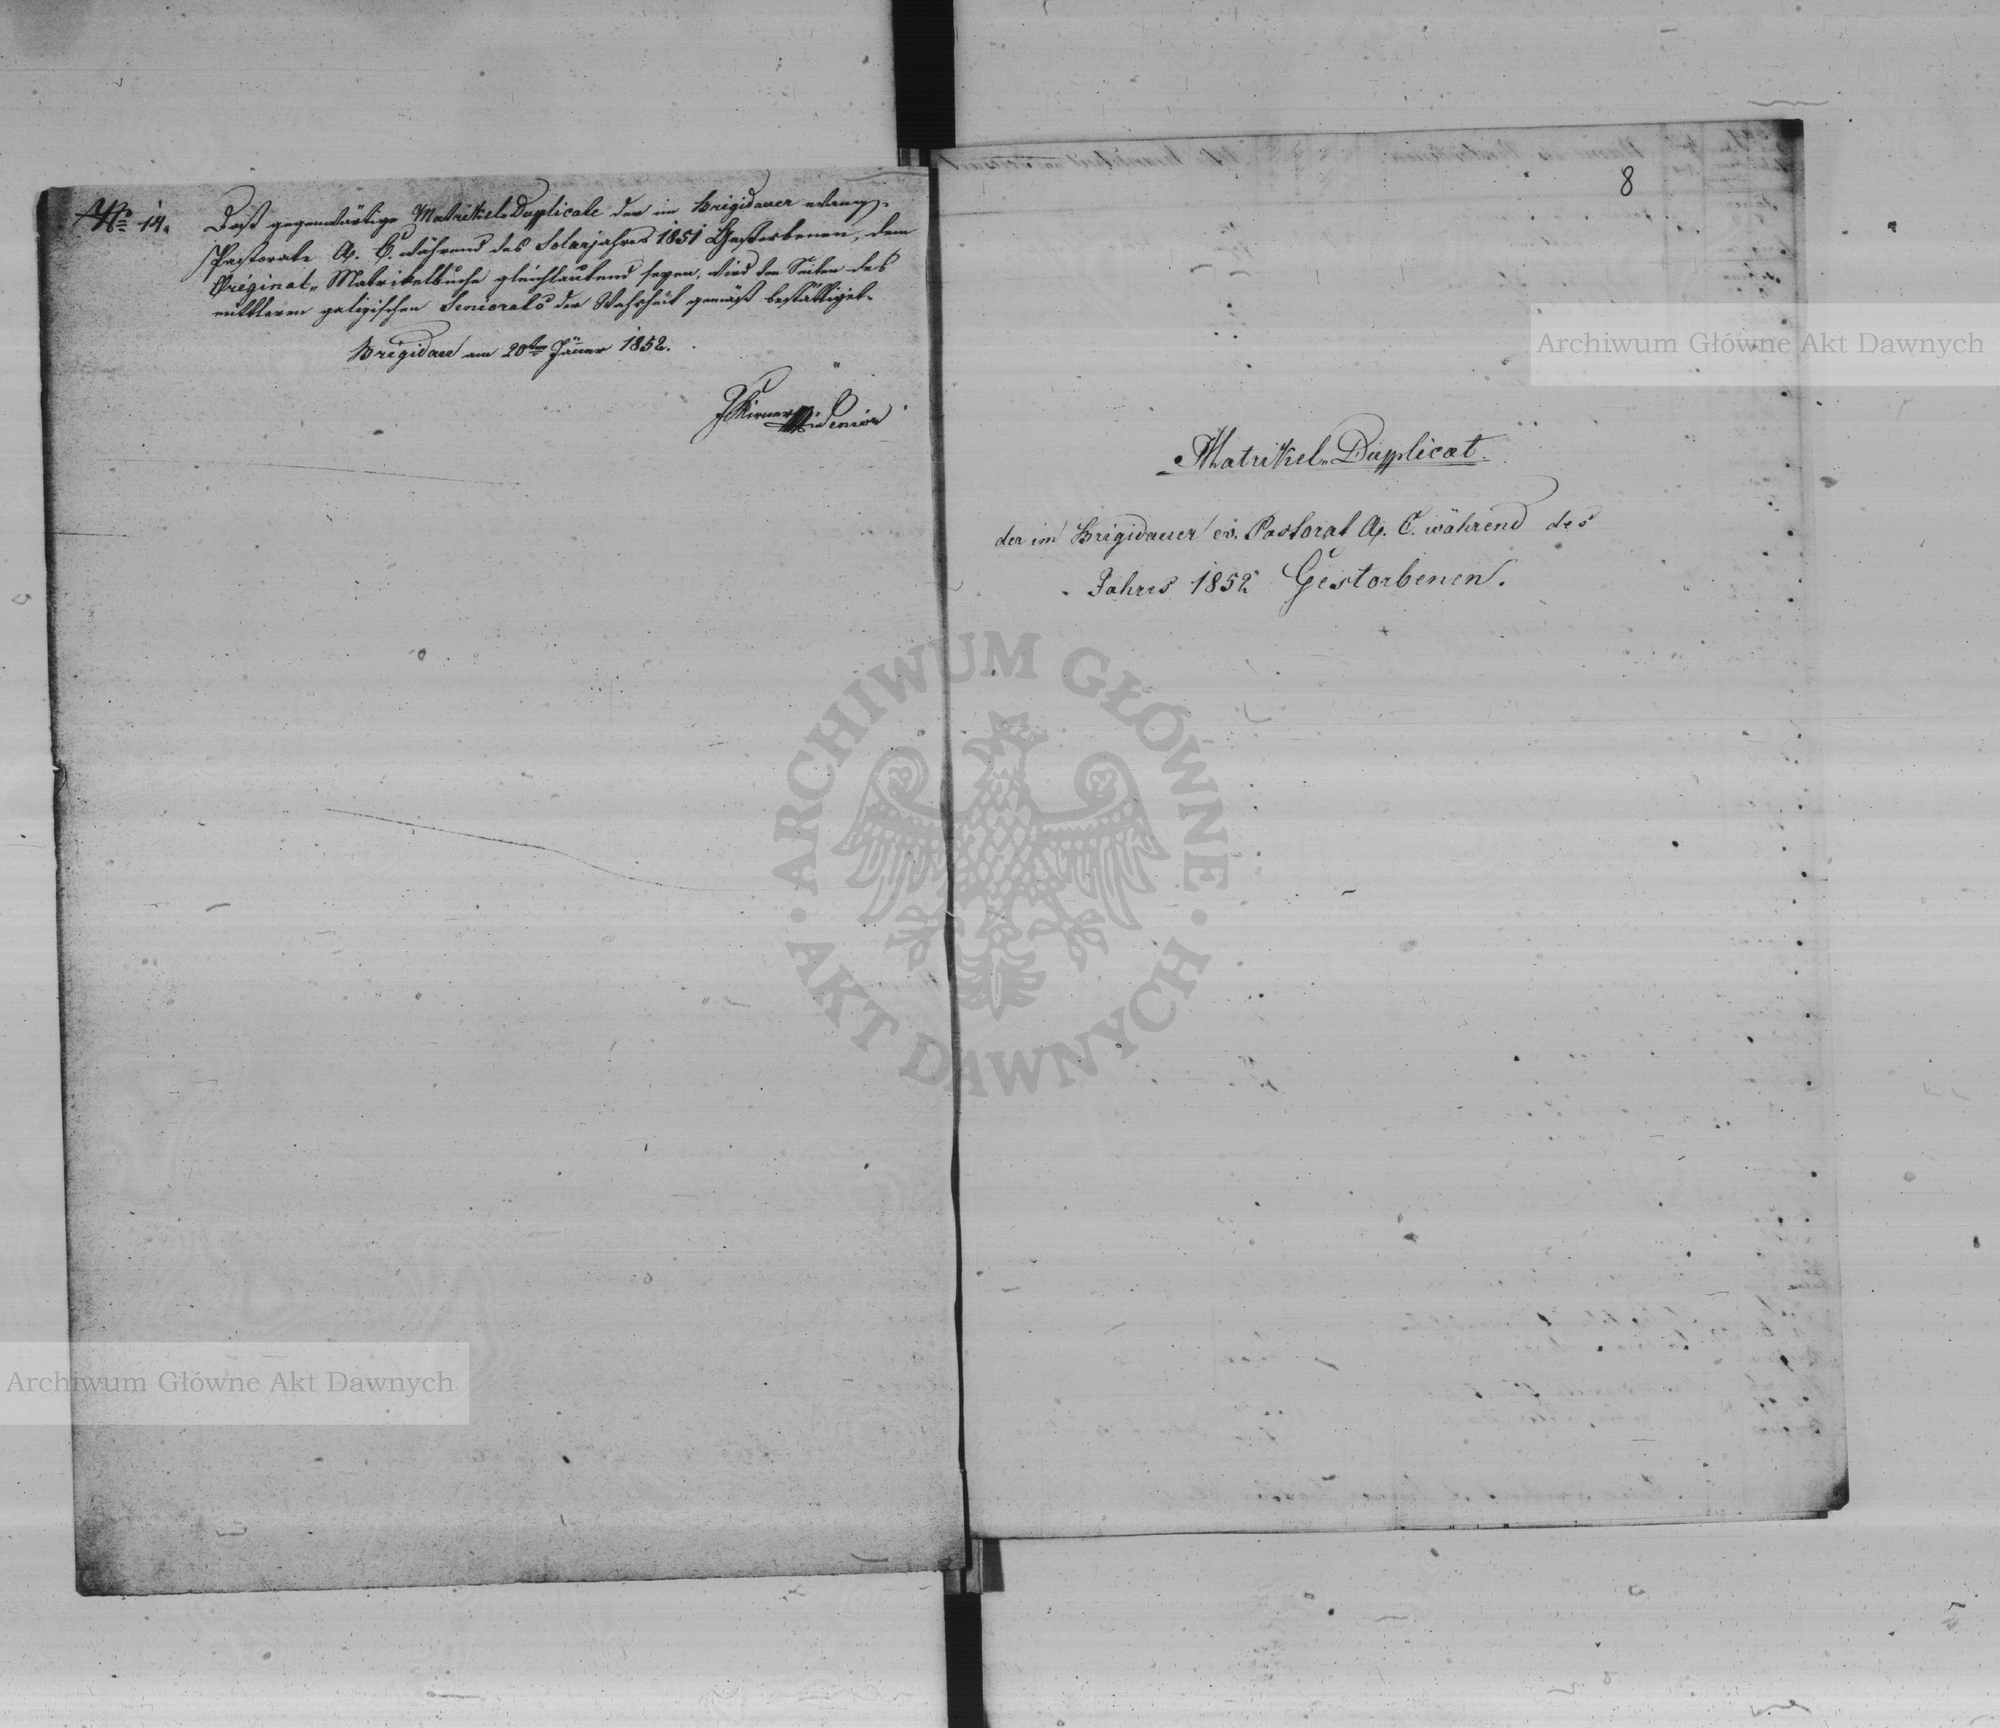 No 14.
Daß gegenwärtige Matrikel-Duplicate der im Brigidauer evang.
Pastorate A. C. während des Solarjahres 1851 Gestorbenen, dem
Original-Matrikelbuche gleichlautend seyen, wird von Seiten des
mittleren galizischen Seniorats der Wahrheit gemäß bestättiget.
Brigidau am 20ten Jänner 1852.
Senior
8
Matrikel-Duplicat.
der im Brigidauer ev. Pastorat A. C. während des
Jahres 1852 Gestorbenen.
Archiwum Główne Akt Dawnych
ARCHIWUM GŁÓWNE
AKT DAWNYCH
Archiwum Główne Akt Dawnych